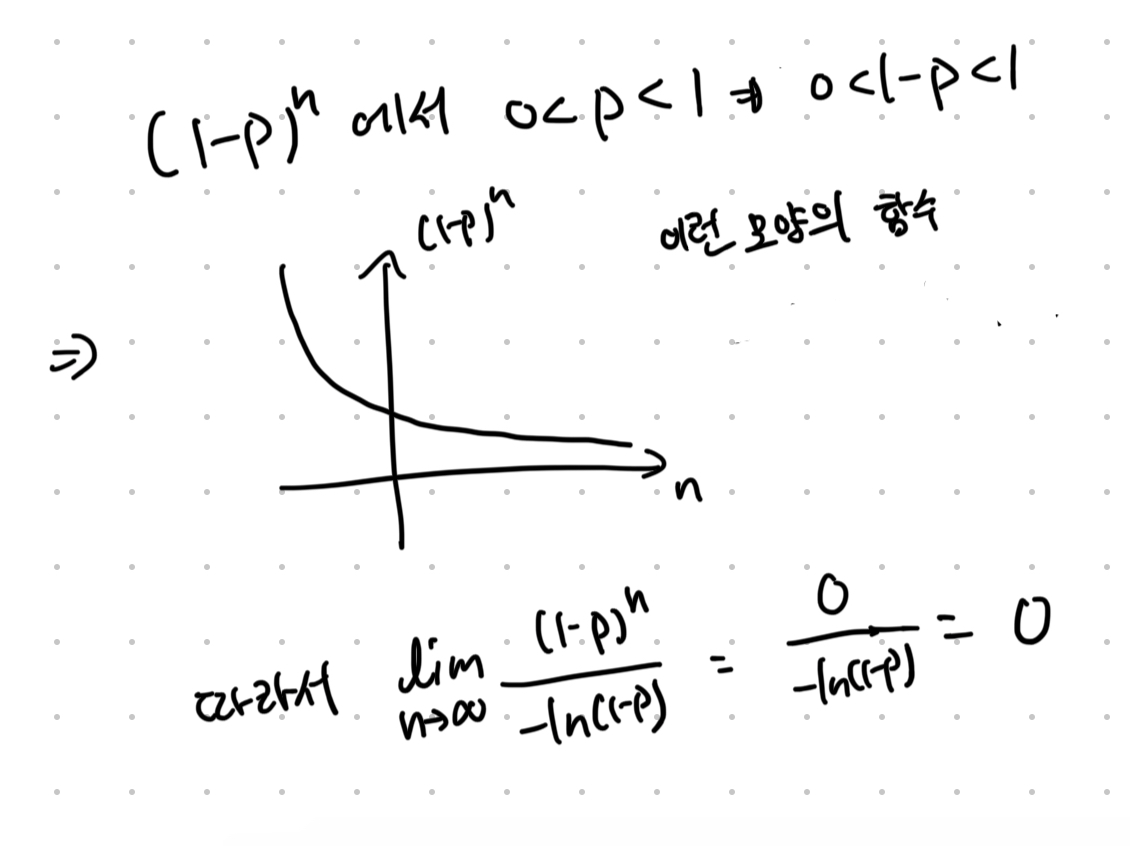 (1-p)^n 에서 0<p<1 ⇒ 0<1-p<1
(1-p)^n 이런 모양의 함수
⇒
n
따라서 lim n→∞ (1-p)^n / -ln(1-p) = 0 / -ln(1-p) = 0